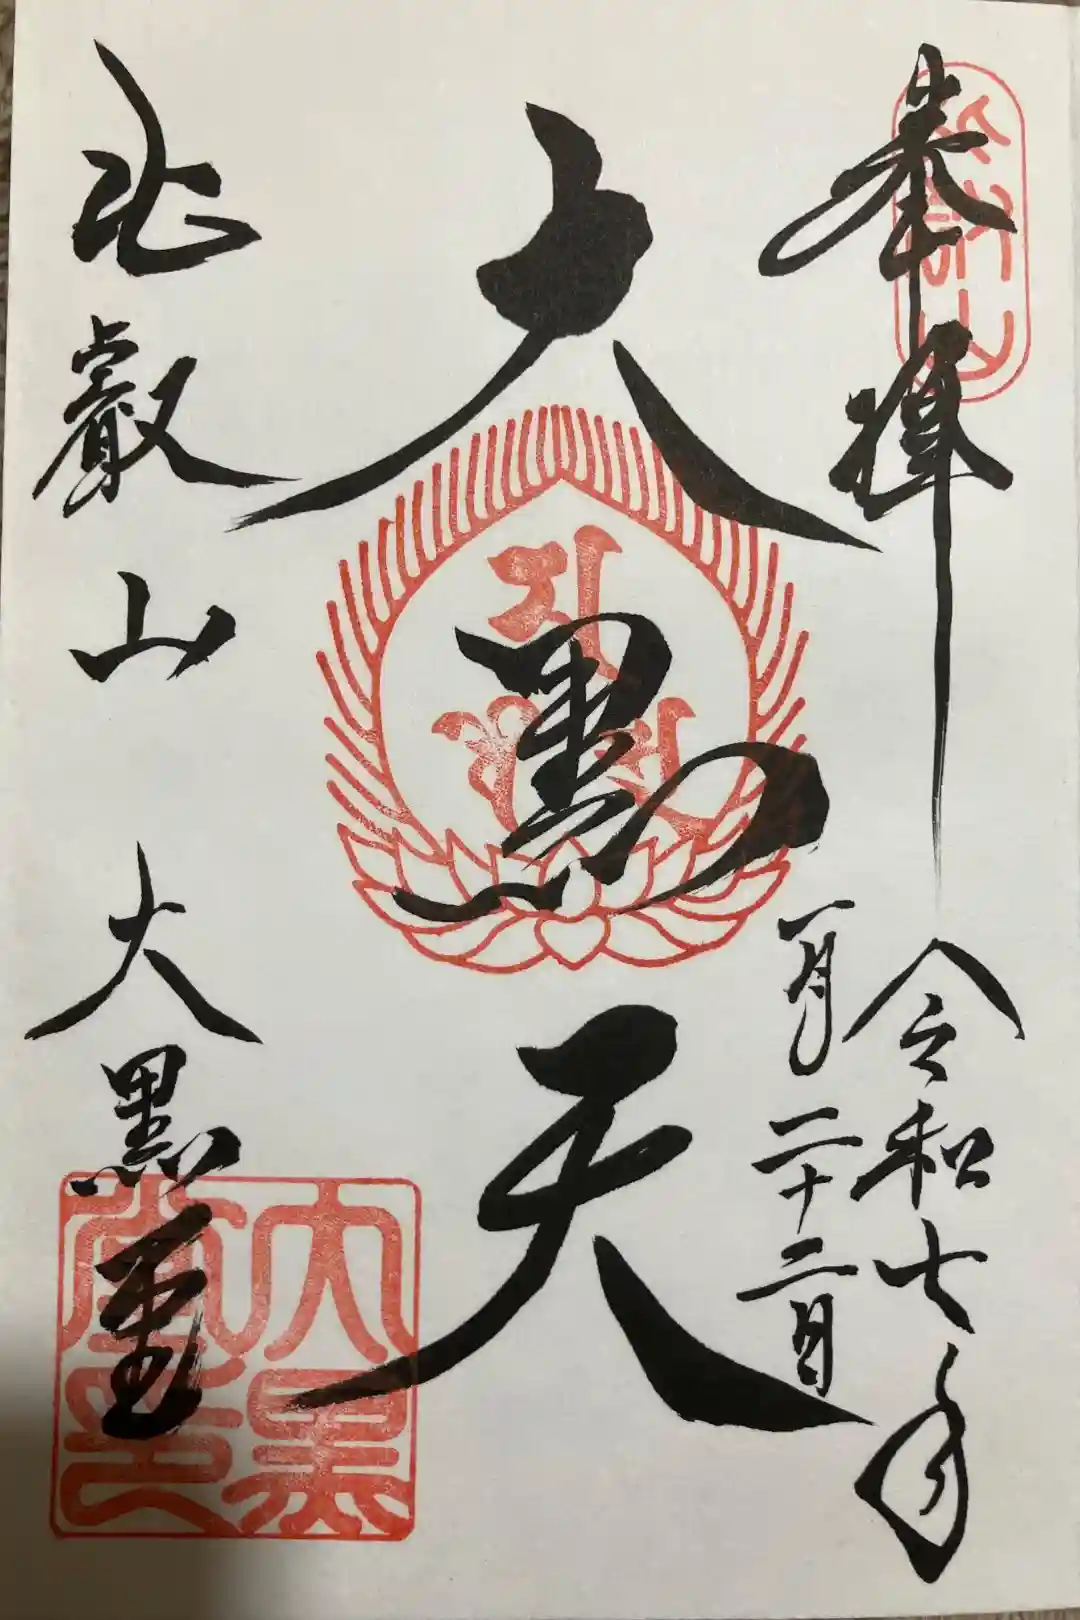 奉拝
令和七年
一月二十二日
大黒天
比叡山 大黒堂
大黒堂印